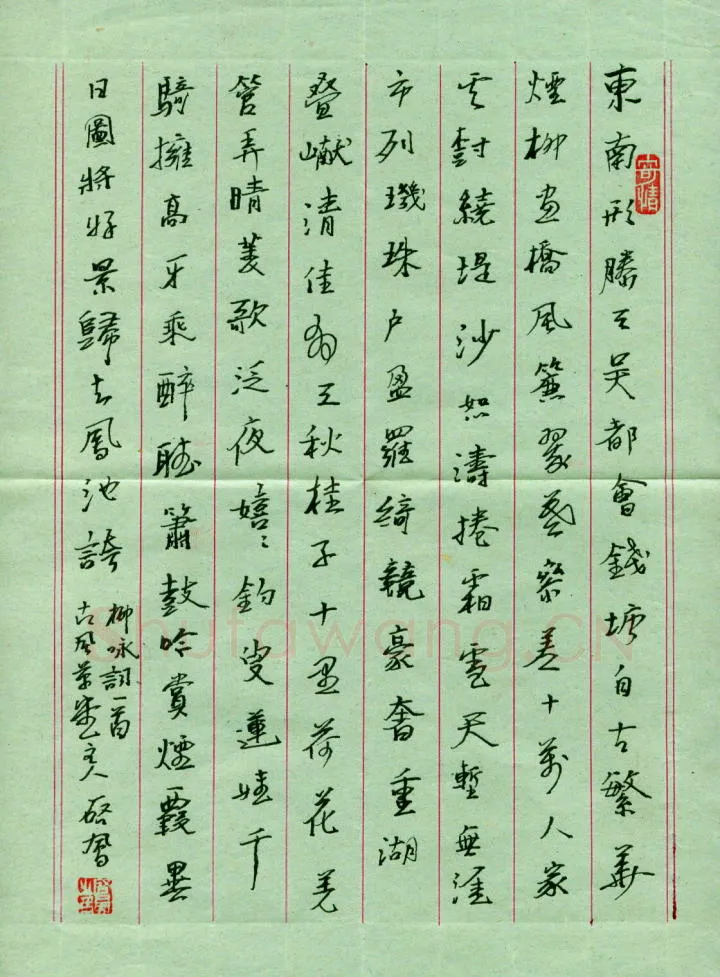 東南形勝三吳都會錢塘自古繁華
煙柳畫橋風簾翠幕參差十萬人家
雲樹繞堤沙怒濤捲霜雪天塹無涯
市列璣珠戶盈羅綺競豪奢重湖
疊巘清佳有三秋桂子十里荷花羌
管弄晴菱歌泛夜嬉〻釣叟蓮娃千
騎擁高牙乘醉聽簫鼓吟賞煙霞異
日圖將好景歸去鳳池誇
柳咏詞一首
古風草堂主人
寄情
Shufawang.CN